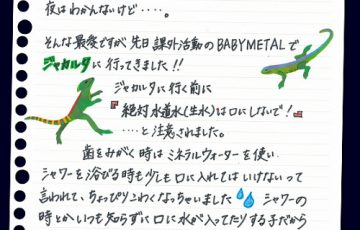 夜はわかんないけど‥‥。
そんな最愛ですが先日課外活動のBABYMETALで
ジャカルタに行ってきました!!
ジャカルタに行く前に
『絶対水道水(生水)は口にしないで!』
‥‥と注意されました。
歯をみがく時はミネラルウォーターを使い
シャワーを浴びる時も少しも口に入れてはいけないって
言われて、ちょっぴりこわくなっちゃいました シャワーの
時とかいつも知らずに口に水が入ってたりする子だから